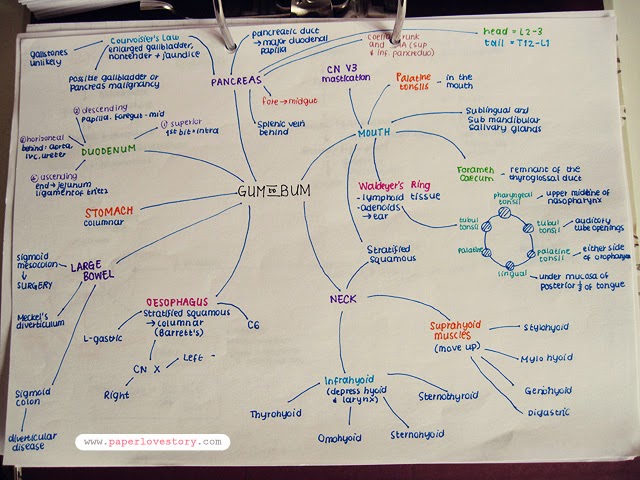 gallstones
unlikely
Courvoisier's Law
enlarged gallbladder,
nontender + jaundice
Possible gallbladder or
pancreas malignancy
pancreatic duct
→ major duodenal
papilla
coeliac trunk
and SMA (sup
& inf. pancreduo)
head = L2-3
tail = T12-L1
PANCREAS
fore → midgut
Splenic vein
behind
CN V3
mastication
Palatine
tonsils
- in the
mouth
MOUTH
Sublingual and
Sub mandibular
salivary glands
Foramen
caecum
- remnant of the
thyroglossal duct
② descending
papilla. foregut - mid
① superior
1st bit = intra
③ horizontal
behind: aorta,
ivc, ureter
DUODENUM
④ ascending
end → jejunum
ligament of treitz
STOMACH
columnar
GUM to BUM
Waldeyer's Ring
- lymphoid tissue
- adenoids
→ ear
pharyngeal
tonsil
- upper midline of
nasopharynx
tubal
tonsil
tubal
tonsil
- auditory
tube openings
palatine
palatine
tonsil
- either side
of oropharynx
lingual
- under mucosa of
posterior ⅓ of tongue
Stratified
Squamous
sigmoid
mesocolon
↓
SURGERY
LARGE
BOWEL
Meckel's
diverticulum
Sigmoid
colon
diverticular
disease
OESOPHAGUS
Stratified squamous
→ columnar
(Barrett's)
L-gastric
C6
CN X
Left -
Right
NECK
Suprahyoid
muscles
(move up)
Stylohyoid
Mylohyoid
Geniohyoid
Digastric
Infrahyoid
(depress hyoid
& larynx)
Thyrohyoid
Omohyoid
Sternohyoid
Sternothyroid
www.paperlovestory.com